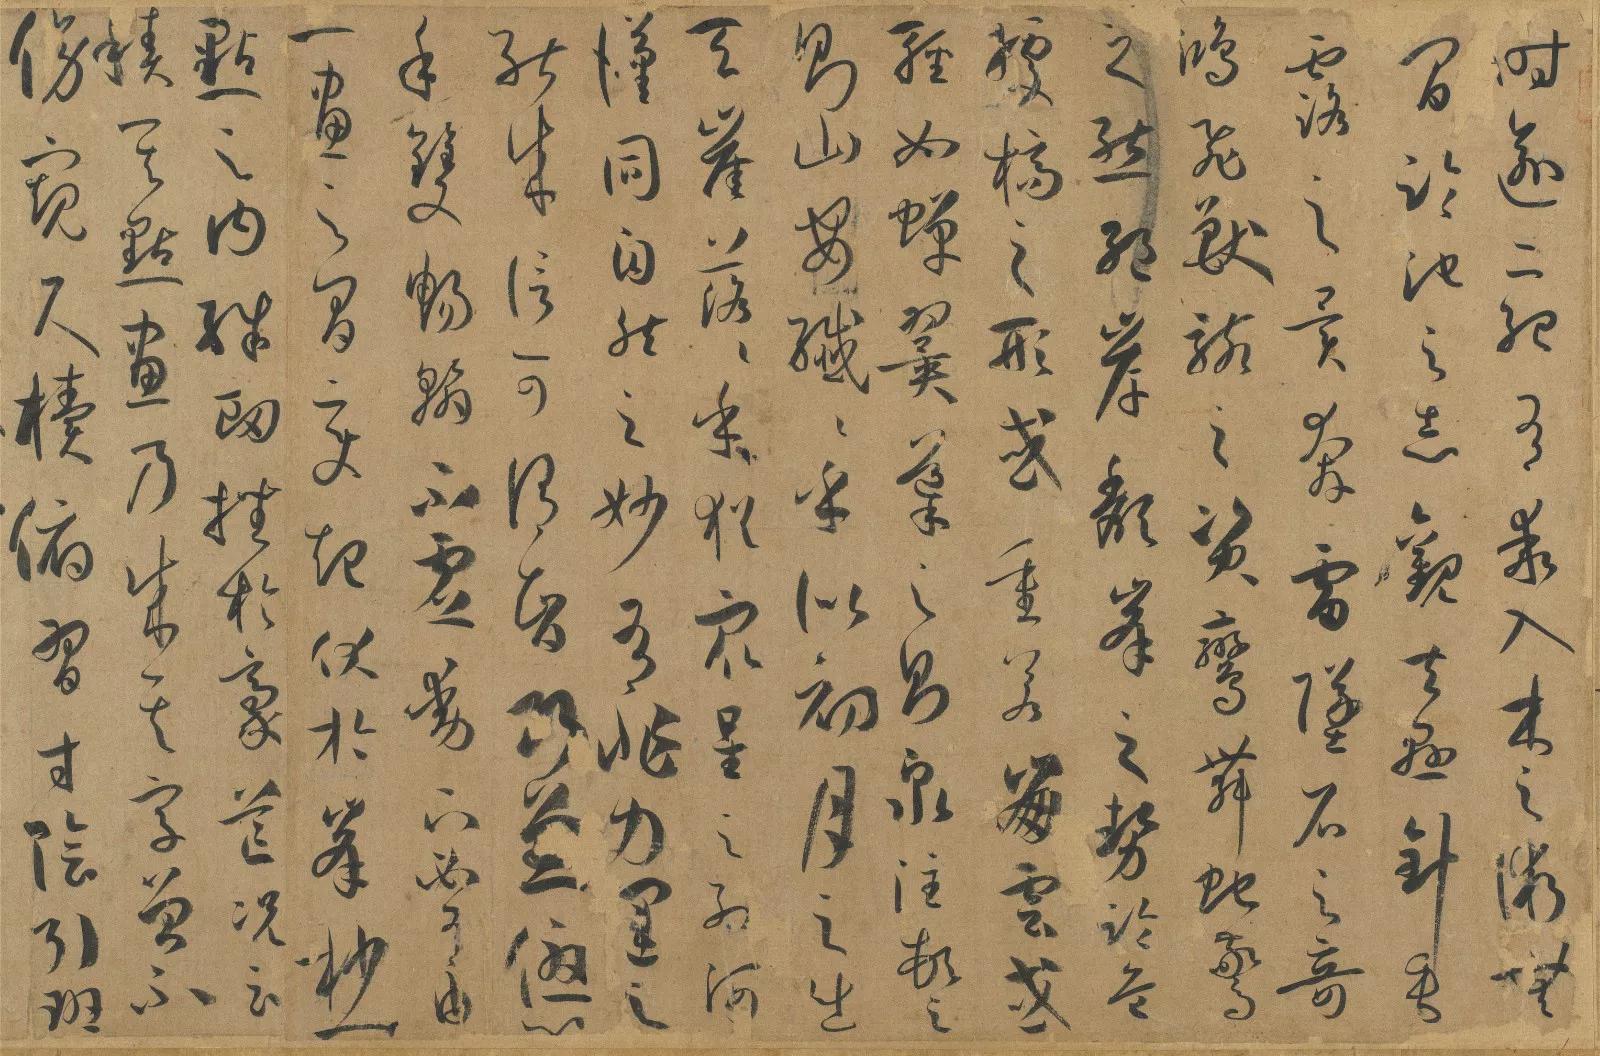 時逾二紀有乖入木之術無
間臨池之志觀夫懸針垂
露之異奔雷墜石之奇
鴻飛獸駭之資鸞舞蛇驚
之態絕岸頹峯之勢臨危
據槁之形或重若崩雲或
輕如蟬翼導之則泉注頓之
則山安纖〻乎似初月之出
天崖落〻乎猶衆星之列河
漢同自然之妙有非力運之
能成信可謂智巧兼優心
手雙暢翰不虛動下必有由
一畫之間變起伏於峯杪一
點之內殊衄挫於豪芒況云
積其點畫乃成其字曾不
傍窺尺牘俯習寸陰引班